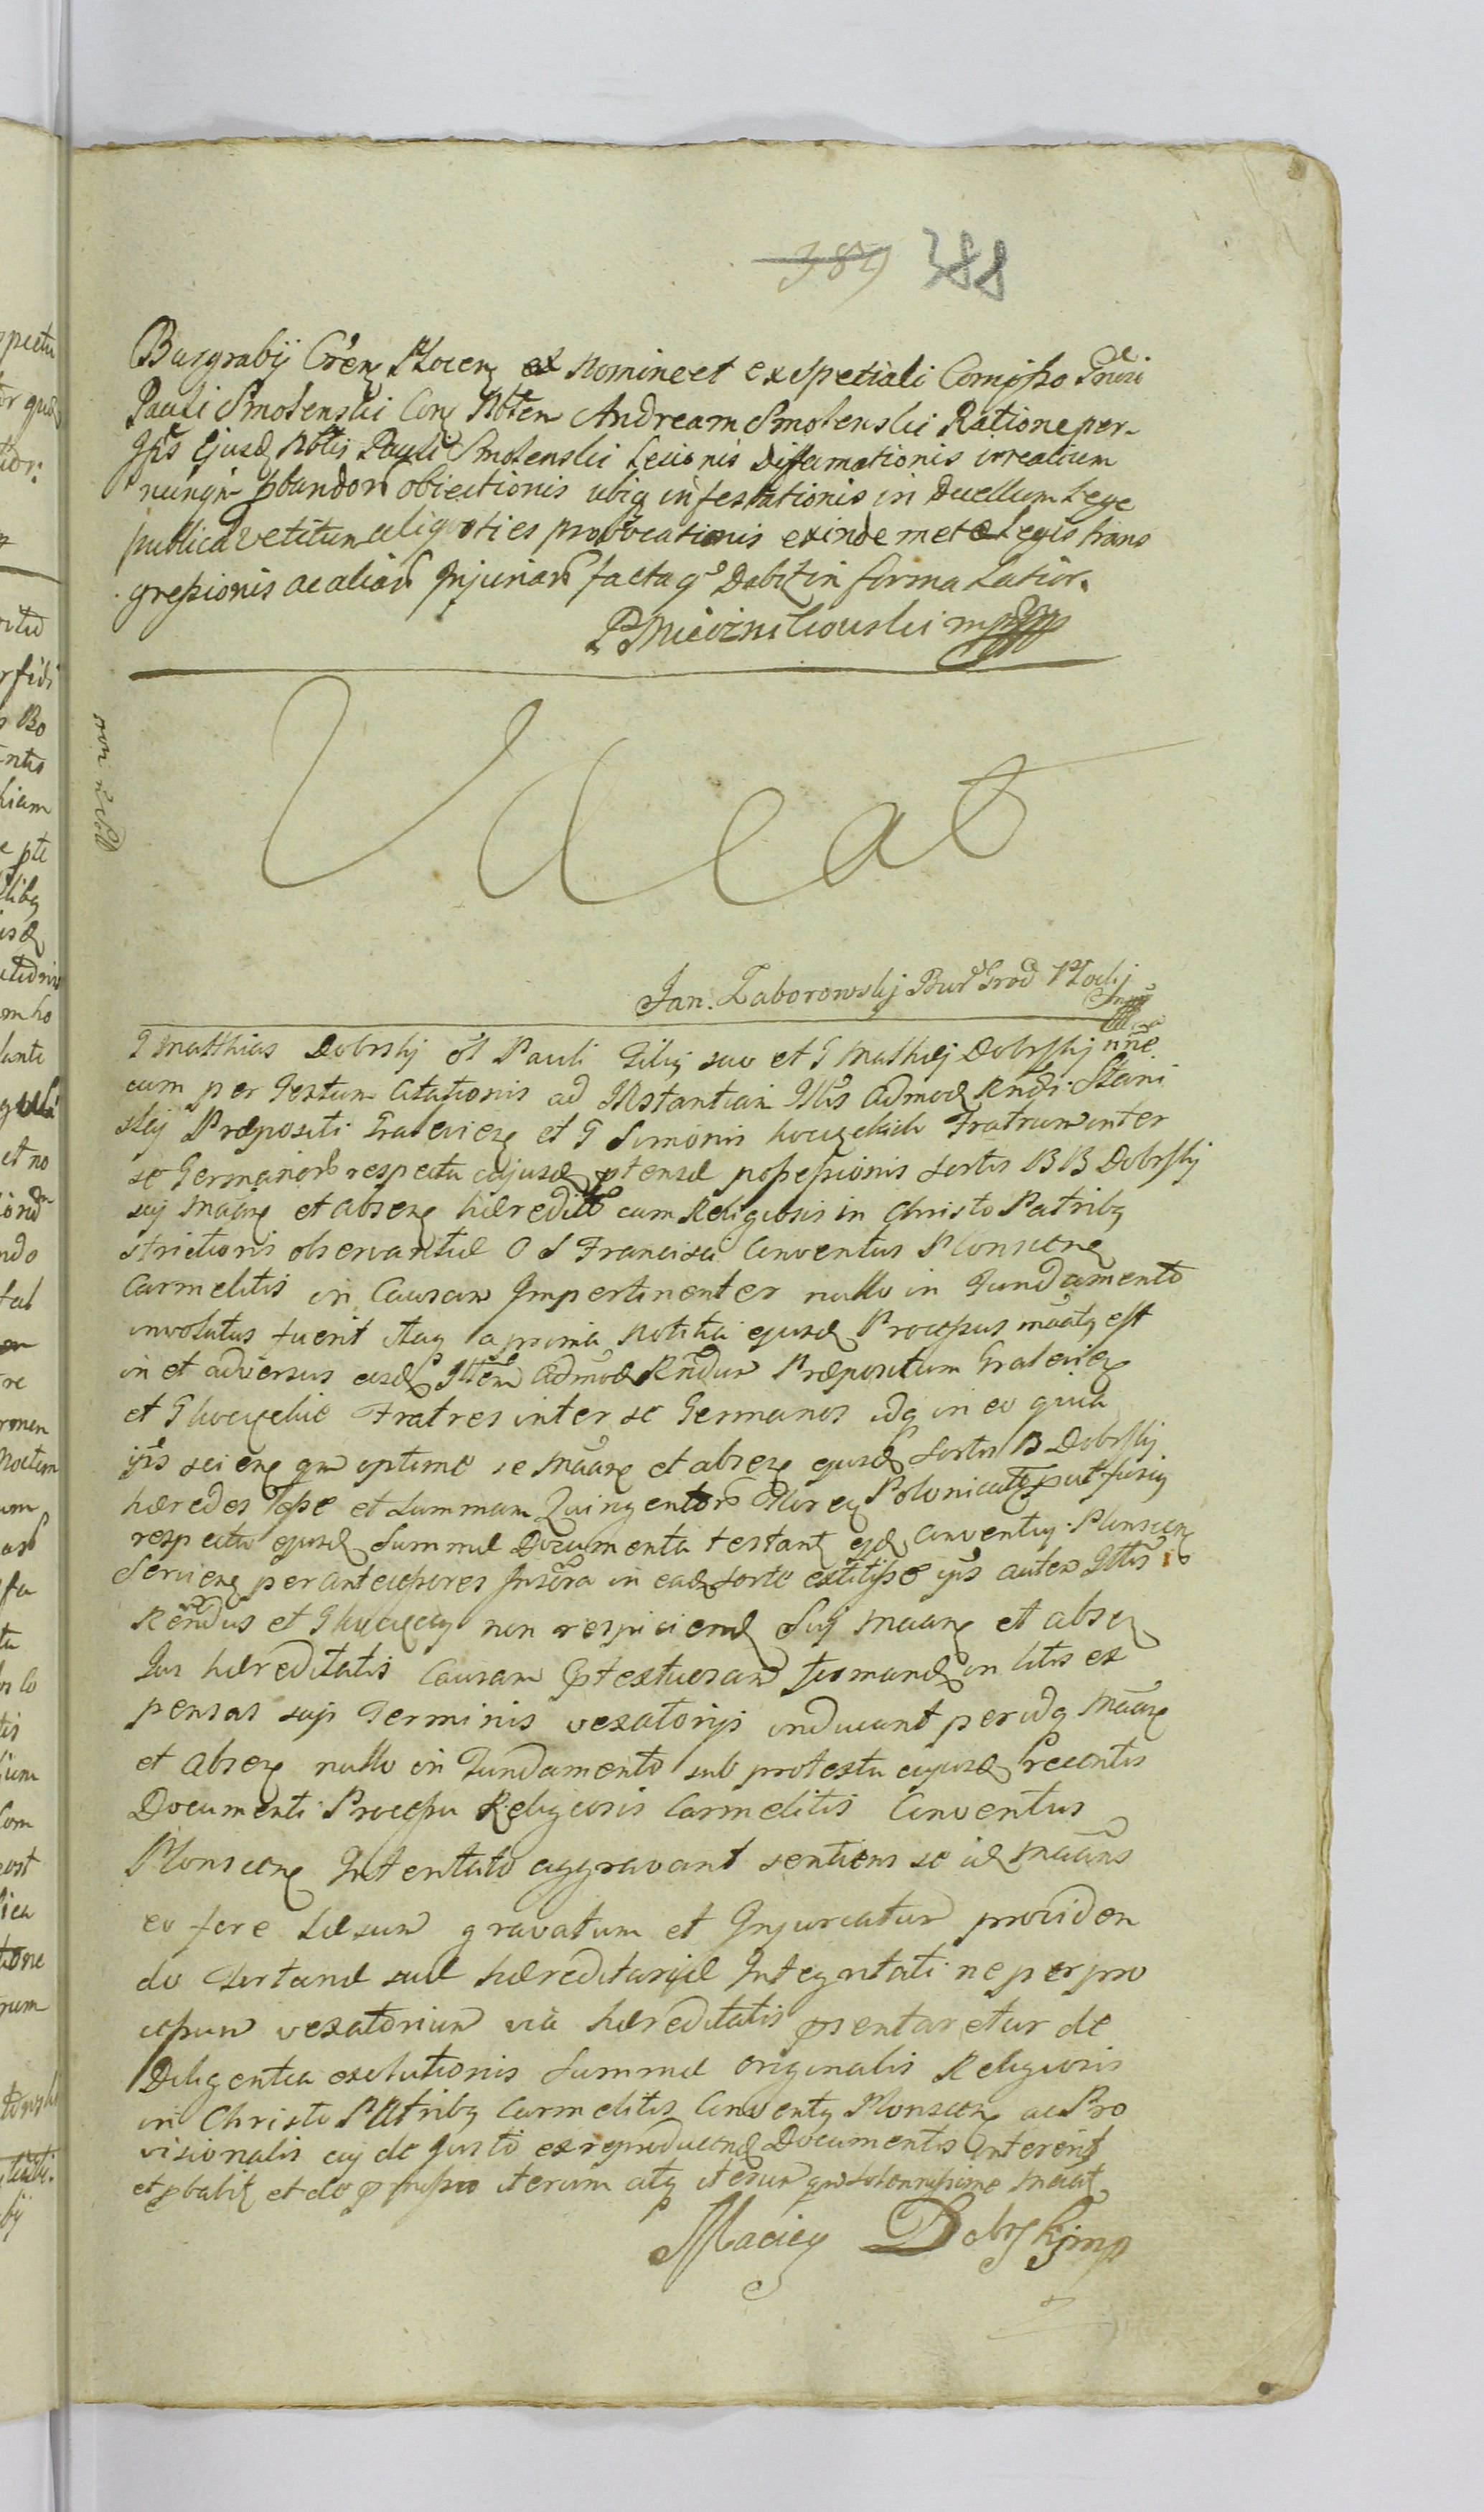 389 388
Burgrabij Cren Plocen ex Nomine et ex Speciali Comisso Gnrosi
Pauli Smolenski Con Nblem Andream Smolenski Ratione per
Ipsius Ejusd Nblis Pauli Smolenski Lesionis Diffamationis irrealium
nunqm pbandor obiectionis ubiq infestationis in Duellum Lege
publica vetitum aliquoties provocationis exinde metae Legis trans
gressionis ac aliar Injuriar factaq Dabit in forma Latior.
P Niedzwieckowski mpp
Vacat
Jan Zaborowskij Bur Grod Plockij
G Matthias Dobrskij ol Pauli Filius suo et G Mathiej Dobrskij nne
cum per Textum Citationis ad Instantiam Illis Admod Rndi Stani
slaj Praepositi Gralewien et G Simonis Fratrum inter
se Germanor respectu cujusd ptensae possessionis Sortis BB Dobrskij
suj Maan et absen haeredit cum Religiosis in Christo Patribq
strictioris observantiae O S Francisci Conventus Plonscen
Carmelitis in Causam Impertinenter nullo in Fundamento
involutus fuerit itaq a prima Notitia ejusd Processus maatq est
in et adversus eosd Illem Admod Rndum Praepositum Gralevien
et G Fratres inter se Germanos idq in eo quia
ijs scien qm optime se Maan et absen ejusd Sortis B Dobrskij
haeredes esse et Summam Quingentor Floren Polonicalium put fusiq
respectu ejusd Summae Documenta testant ejd Conventuj Plonscen
Servien per antecessores Inscra in ead Sorte extitisse ijs autem Illis
Rendus et G non respiciend Suj Maan et absen
Jus haereditatis Causam ptextuosam formand in litis ex
pensas suis Terminis vexatorijs inducunt per idq Maan
et absen nullo in Fundamento sub protextu cujusd recentis
Documenti Processu Religiosis Carmelitis Conventus
Plonscen Intentato aggravant sentiens se id Maans
eo fere laesum gravatum et Injuriatum providen
do Fortunae suae haereditariae Integritati ne per pro
cessum vexatorium via haereditatis psentaretur de
Diligentia exolutionis Summae originalis Religiosis
in Christo Patribq Carmelitis Conventq Plonscen ac Pro
visionalis cuj de Justo ex reproducend Documentis Intererit
et pbabit et de pmisso iterum atq iterum qm Solennissime Maat
Maciey Dobrskj mp